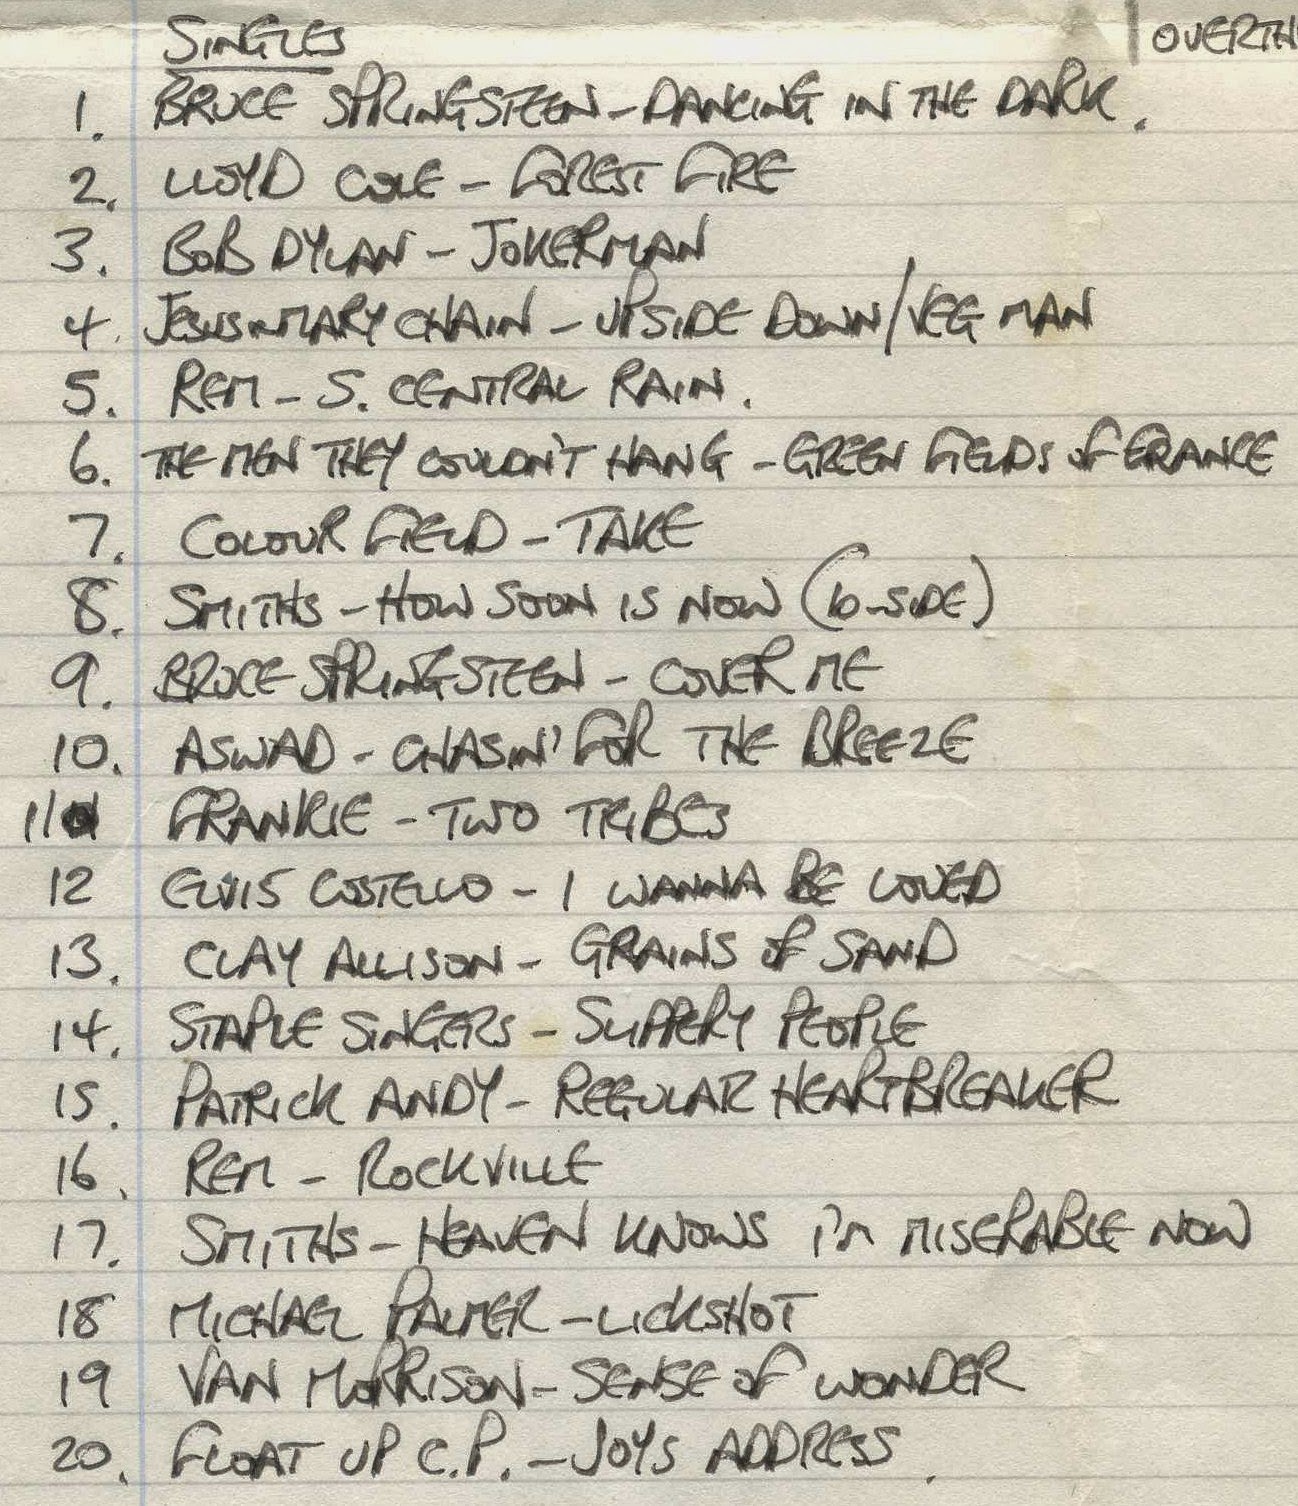 SINGLES
OVERTH
1. BRUCE SPRINGSTEEN - DANCING IN THE DARK.
2. LLOYD COLE - FOREST FIRE
3. BOB DYLAN - JOKERMAN
4. JESUSNMARY CHAIN - UPSIDE DOWN/VEG MAN
5. REM - S. CENTRAL RAIN.
6. THE MEN THEY COULDN'T HANG - GREEN FIELDS OF FRANCE
7. COLOUR FIELD - TAKE
8. SMITHS - HOW SOON IS NOW (b-SIDE)
9. BRUCE SPRINGSTEEN - COVER ME
10. ASWAD - CHASIN' FOR THE BREEZE
11 FRANKIE - TWO TRIBES
12 ELVIS COSTELLO - I WANNA BE LOVED
13. CLAY ALLISON - GRAINS OF SAND
14. STAPLE SINGERS - SLIPPERY PEOPLE
15. PATRICK ANDY - REGULAR HEARTBREAKER
16. REM - ROCKVILLE
17. SMITHS - HEAVEN KNOWS I'M MISERABLE NOW
18 MICHAEL PALMER - LICKSHOT
19 VAN MORRISON - SENSE OF WONDER
20. FLOAT UP C.P. - JOYS ADDRESS.